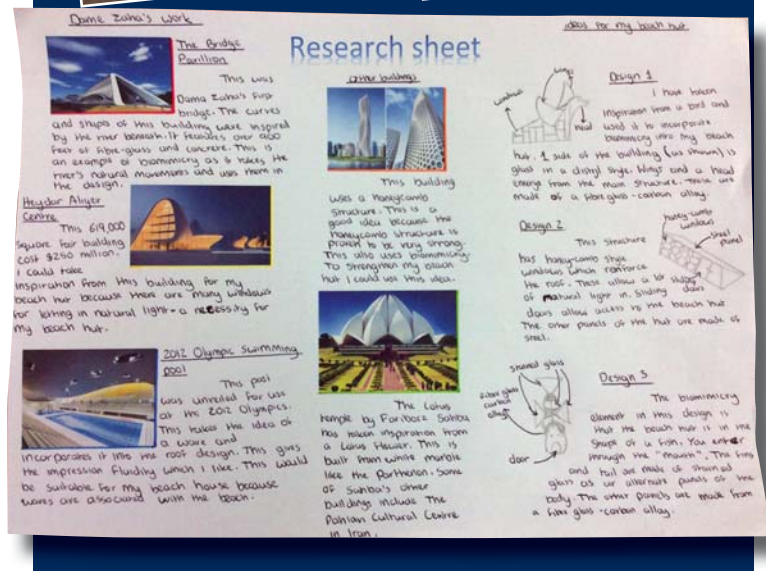 Dame Zaha's Work
The Bridge
Pavillion
This was
Dama Zaha's first
bridge. The curves
and shape of this building were inspired
by the river beneath. It features over 900
feet of fibre-glass and concrete. This is
an example of biomimicry as it takes the
river's natural movements and uses them in
the design.
Heydar Aliyev
Centre
This 619,000
square foot building
cost $250 million.
I could take
inspiration from this building for my
beach hut because there are many windows
for letting in natural light - a necessity for
my beach hut.
2012 Olympic Swimming
pool
This pool
was unveiled for use
at the 2012 Olympics.
This takes the idea of
a wave and
incorporates it into the roof design. This gives
the impression fluidity which I like. This would
be suitable for my beach house because
waves are associated with the beach.
Research sheet
other buildings
This building
uses a honeycomb
structure. This is a
good idea because the
honeycomb structure is
proven to be very strong.
This also uses biomimicry.
To strengthen my beach
hut I could use this idea.
The Lotus
temple by Fariborz Sahba
has taken inspiration from
a Lotus Flower. This is
built from white marble
like the Parthenon. Some
of Sahba's other
buildings include The
Cultural Centre
in Iran.
ideas for my beach hut
wings
windows
head
Design 1
I have taken
inspiration from a bird and
used it to incorporate
biomimicry into my beach
hut. 1 side of the building (as shown) is
glass in a style. Wings and a head
emerge from the main structure. These are
made of a fibreglass-carbon alloy.
Design 2
honey-comb
windows
steel
panel
sliding
doors
This structure
has honey-comb style
windows which reinforce
the roof. These allow a lot
of natural light in. Sliding
doors allow access to the beach hut
The other panels of the hut are made of
steel.
Design 3
stained glass
fibre glass
carbon
alloy
door
The biomimicry
element in this design is
that the beach hut is in the
shape of a fish. You enter
through the "mouth". The fins
and tail are made of stained
glass as ur alternate panels of the
body. The other panels are made from
a fibre glass-carbon alloy.